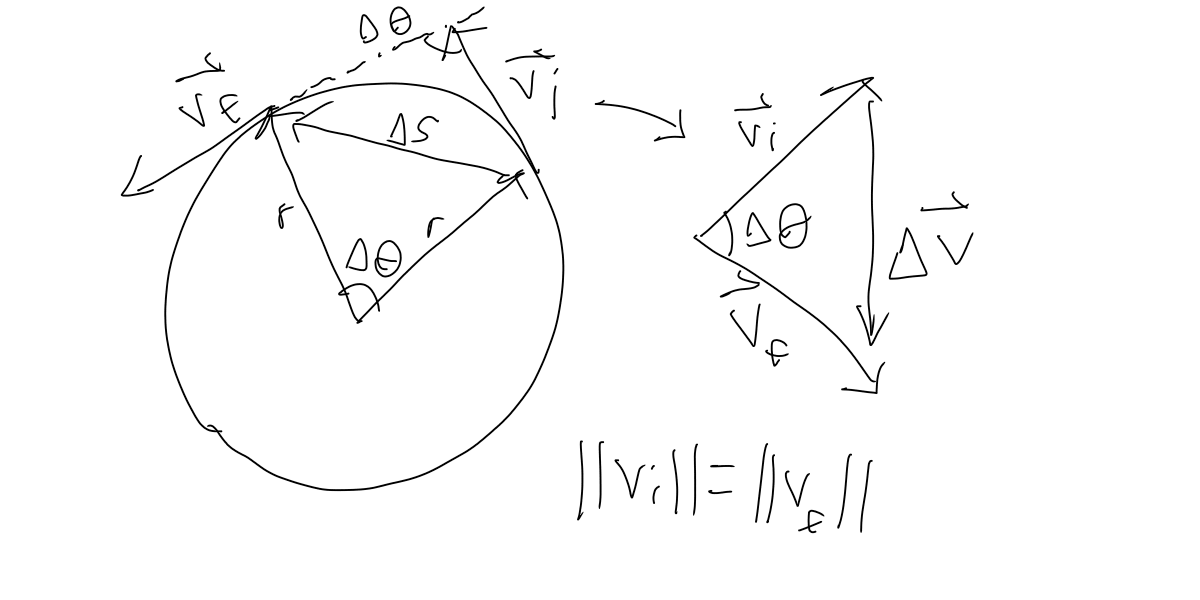 Δθ
v⃗f
v⃗i
Δs
r
r
Δθ
v⃗i
Δθ
v⃗f
Δv⃗
||vi|| = ||vf||